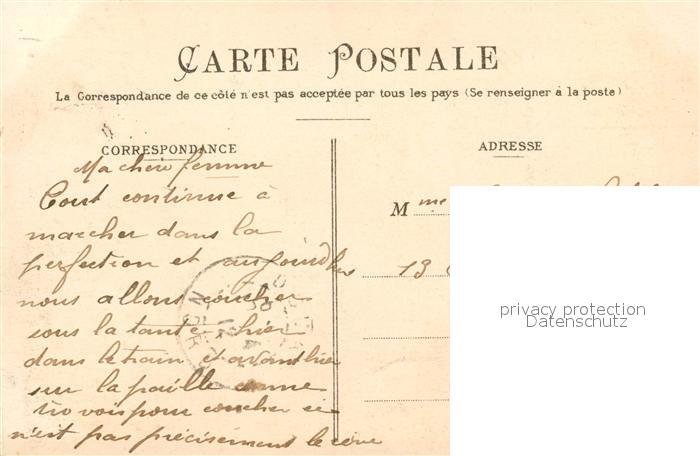 CARTE POSTALE
La Correspondance de ce côté n'est pas acceptée par tous les pays (Se renseigner à la poste)
CORRESPONDANCE
Ma chère femme
Tout continue à
marcher dans la
perfection et aujourdhui
nous allons coucher
sous la tante hier
dans le train et avant hier
sur la paille comme
tu vois pour coucher ce
n'est pas précisément le rêve
ADRESSE
Mme
13
privacy protection
Datenschutz